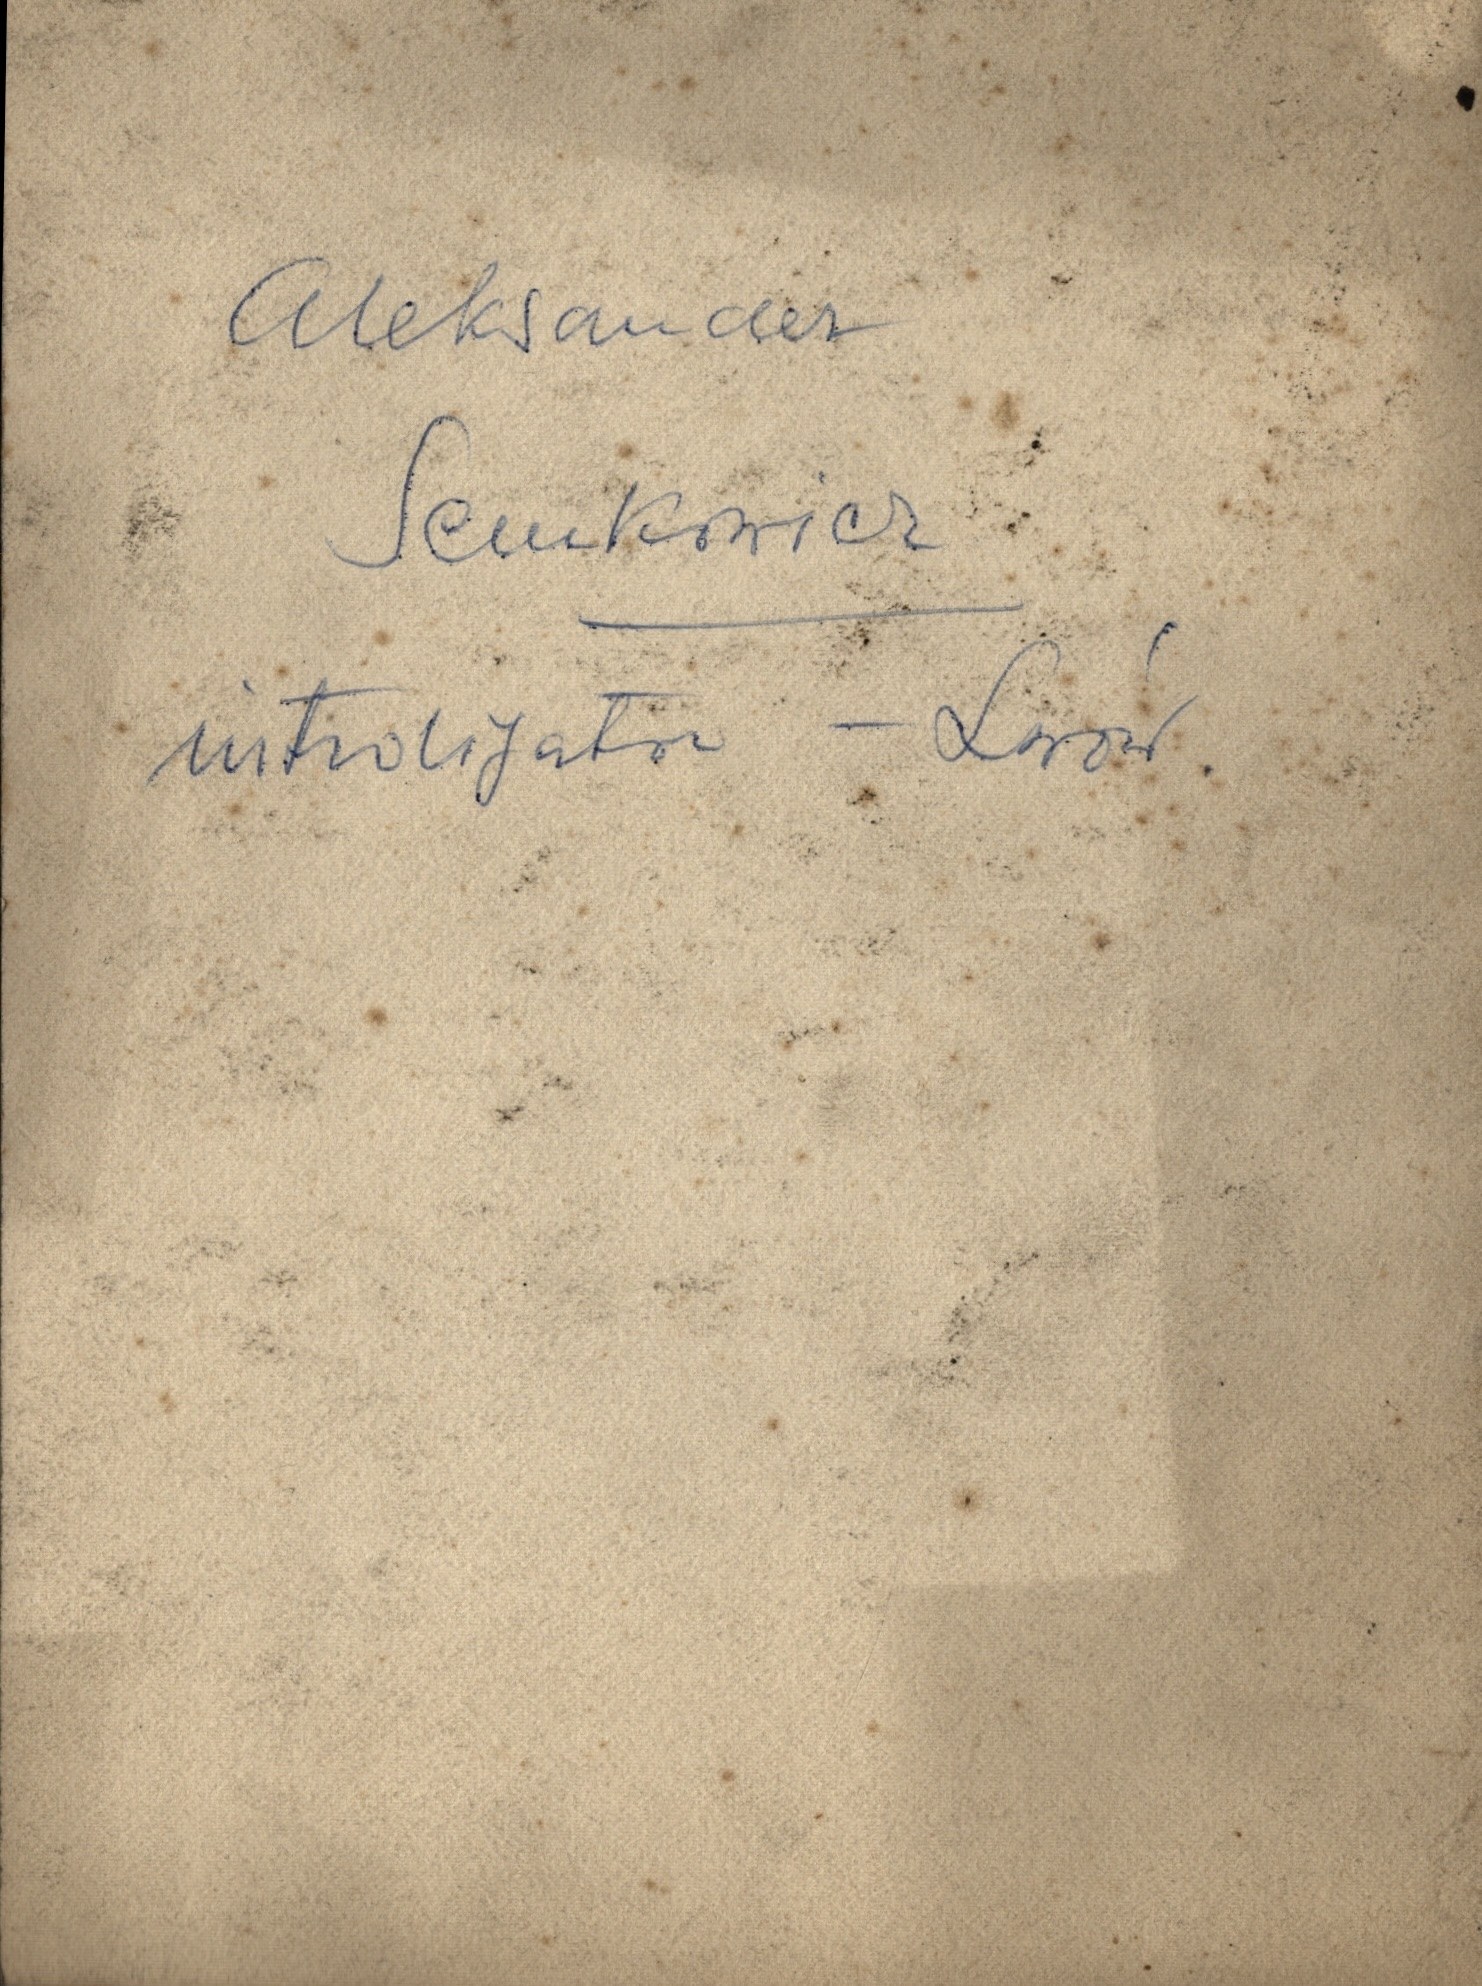 Aleksander
Semkowicz
introligator – Lwów.